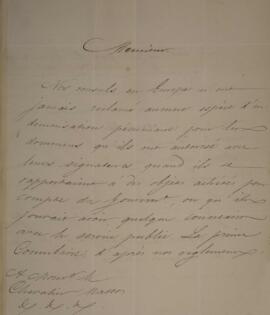 Monsieur
Nos consuls en Europe n'ont
jamais reclamé aucune espèce d'in
demnisation pecuniaire pour les
documens qu'ils ont autorisé avec
leurs signatures quand ils se
rapportaient à des objets achetés pour
compte du Gouvernt, ou qui
pouvait avoir quelque connexion
avec le service public. La prime
Consulaire d'après nos reglemens
A Monsr. le
Chevalier Masson
&. &. &.